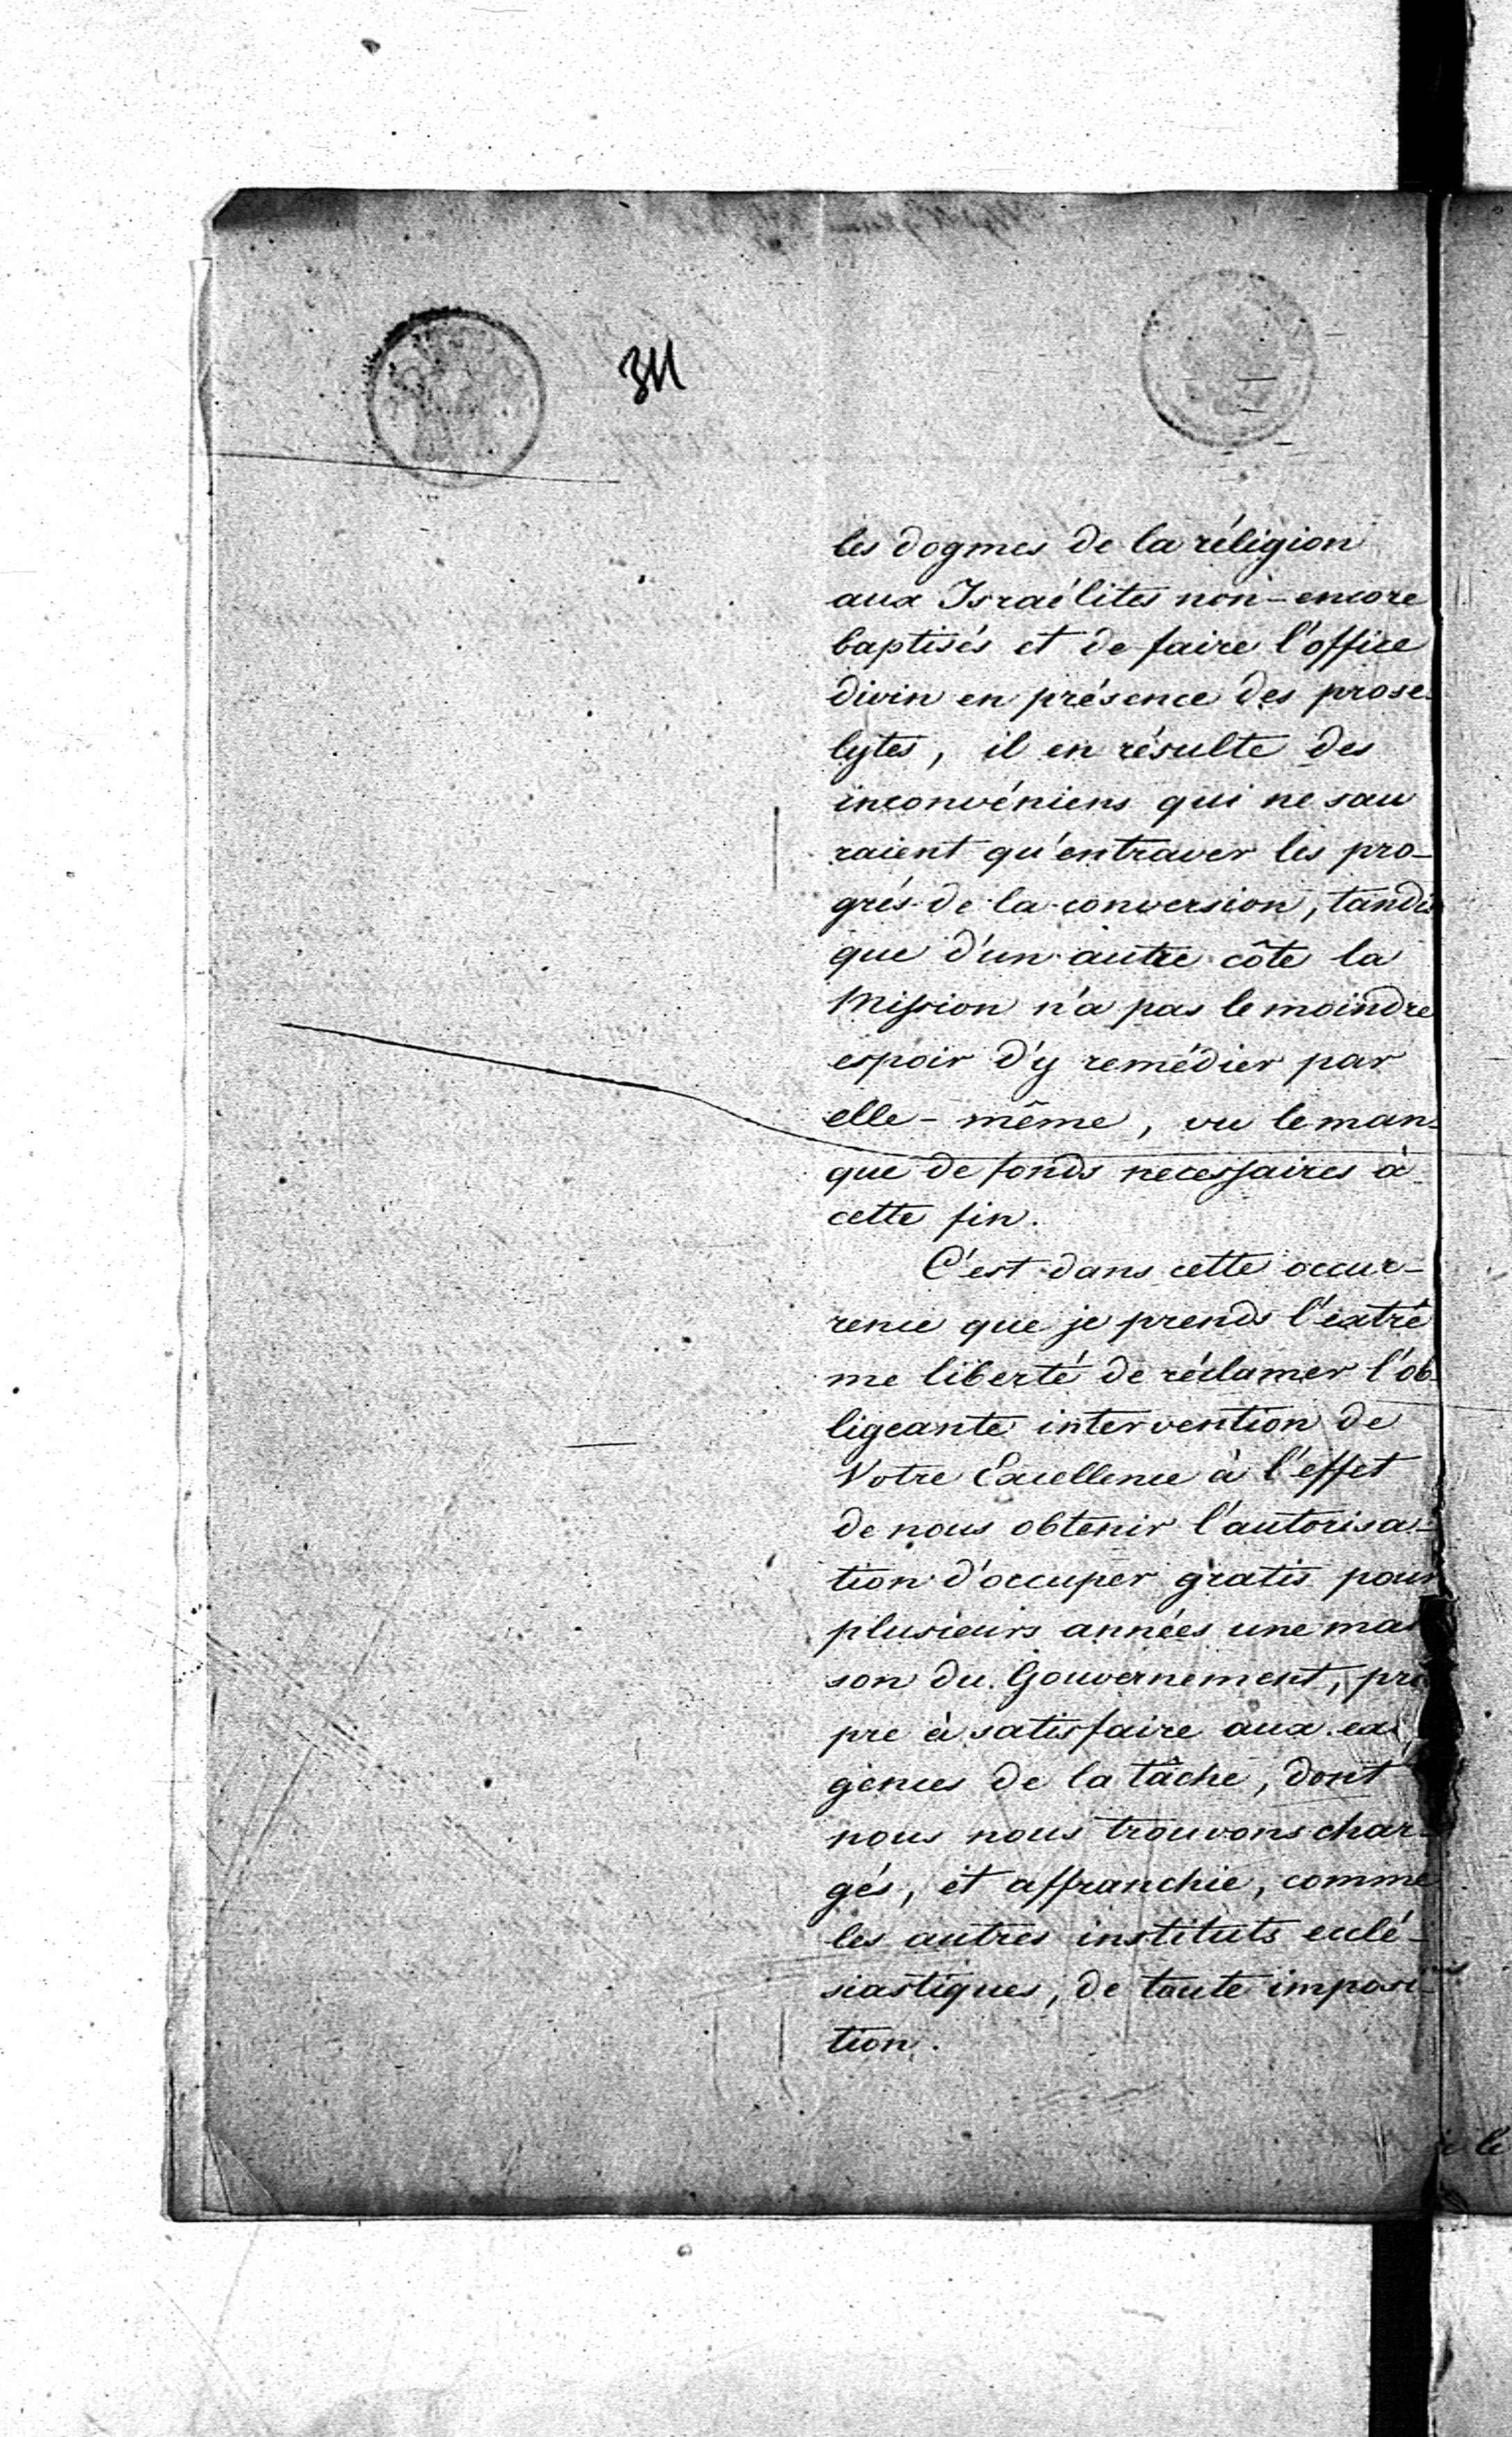 311
les dogmes de la réligion
aux Israélites non-encore
baptisés et de faire l'office
divin en présence des prose-
lytes, il en résulte des
inconvéniens qui ne sau
raient qu'entraver les pro-
grés de la conversion, tandis
que d'un autre côte la
Mission n'a pas le moindre
espoir d'y remédier par
elle-même, vu le man-
que de fonds necessaires à
cette fin.
C'est dans cette occur-
rence que je prends l'extrê
me liberté de réclamer l'ob-
ligeante intervention de
Votre Excellence à l'effet
de nous obtenir l'autorisa-
tion d'occuper gratis pour
plusieurs années une mai
son du Gouvernement, pro
pre à satisfaire aux exi
gences de la tâche, dont
nous nous trouvons char-
gés, et affranchie, comme
les autres instituts ecclé-
siastiques, de toute imposi-
tion.